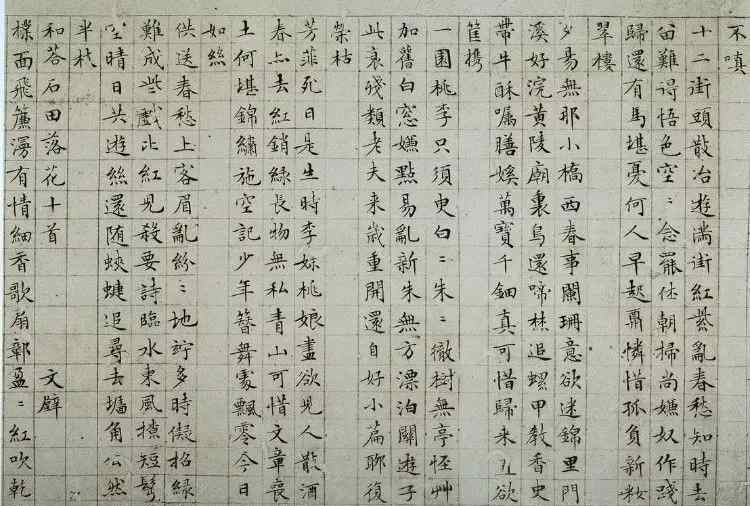 不嗔
十二街頭散冶遊滿街紅紫亂春愁知時去
留難得悟色空〻念罷休朝掃尚嫌奴作踐
歸還有馬堪憂何人早起鼎憐惜孤負新妝
翠樓
夕昜無那小橋西春事闌珊意欲迷錦里門
溪好浣黃陵廟裏鳥還啼焚追螺甲教香史
帶牛酥囑膳娭萬寶千鈿真可惜歸來直欲
筐攜
一園桃李只須臾白〻朱〻徹樹無亭怪艸
加舊白窓嫌點易亂新朱無方漂泊關遊子
此衰殘類老夫来歲重開還自好小篇聊復
榮枯
芳菲死日是生時李妹桃娘盡欲兒人散酒
春亦去紅銷綠長物無私青山可惜文章喪
土何堪錦繡施空記少年簪舞處飄零今日
如絲
供送春愁上客眉亂紛〻地竚多時儗招綠
難成些戲比紅兒殺要詩臨水東風撩短鬂
空晴日共遊絲還随蛺蝶追尋去墻角公然
半枝
和荅石田落花十首 文璧
撲面飛簾漫有情細香歌扇鄣盈〻紅吹乾